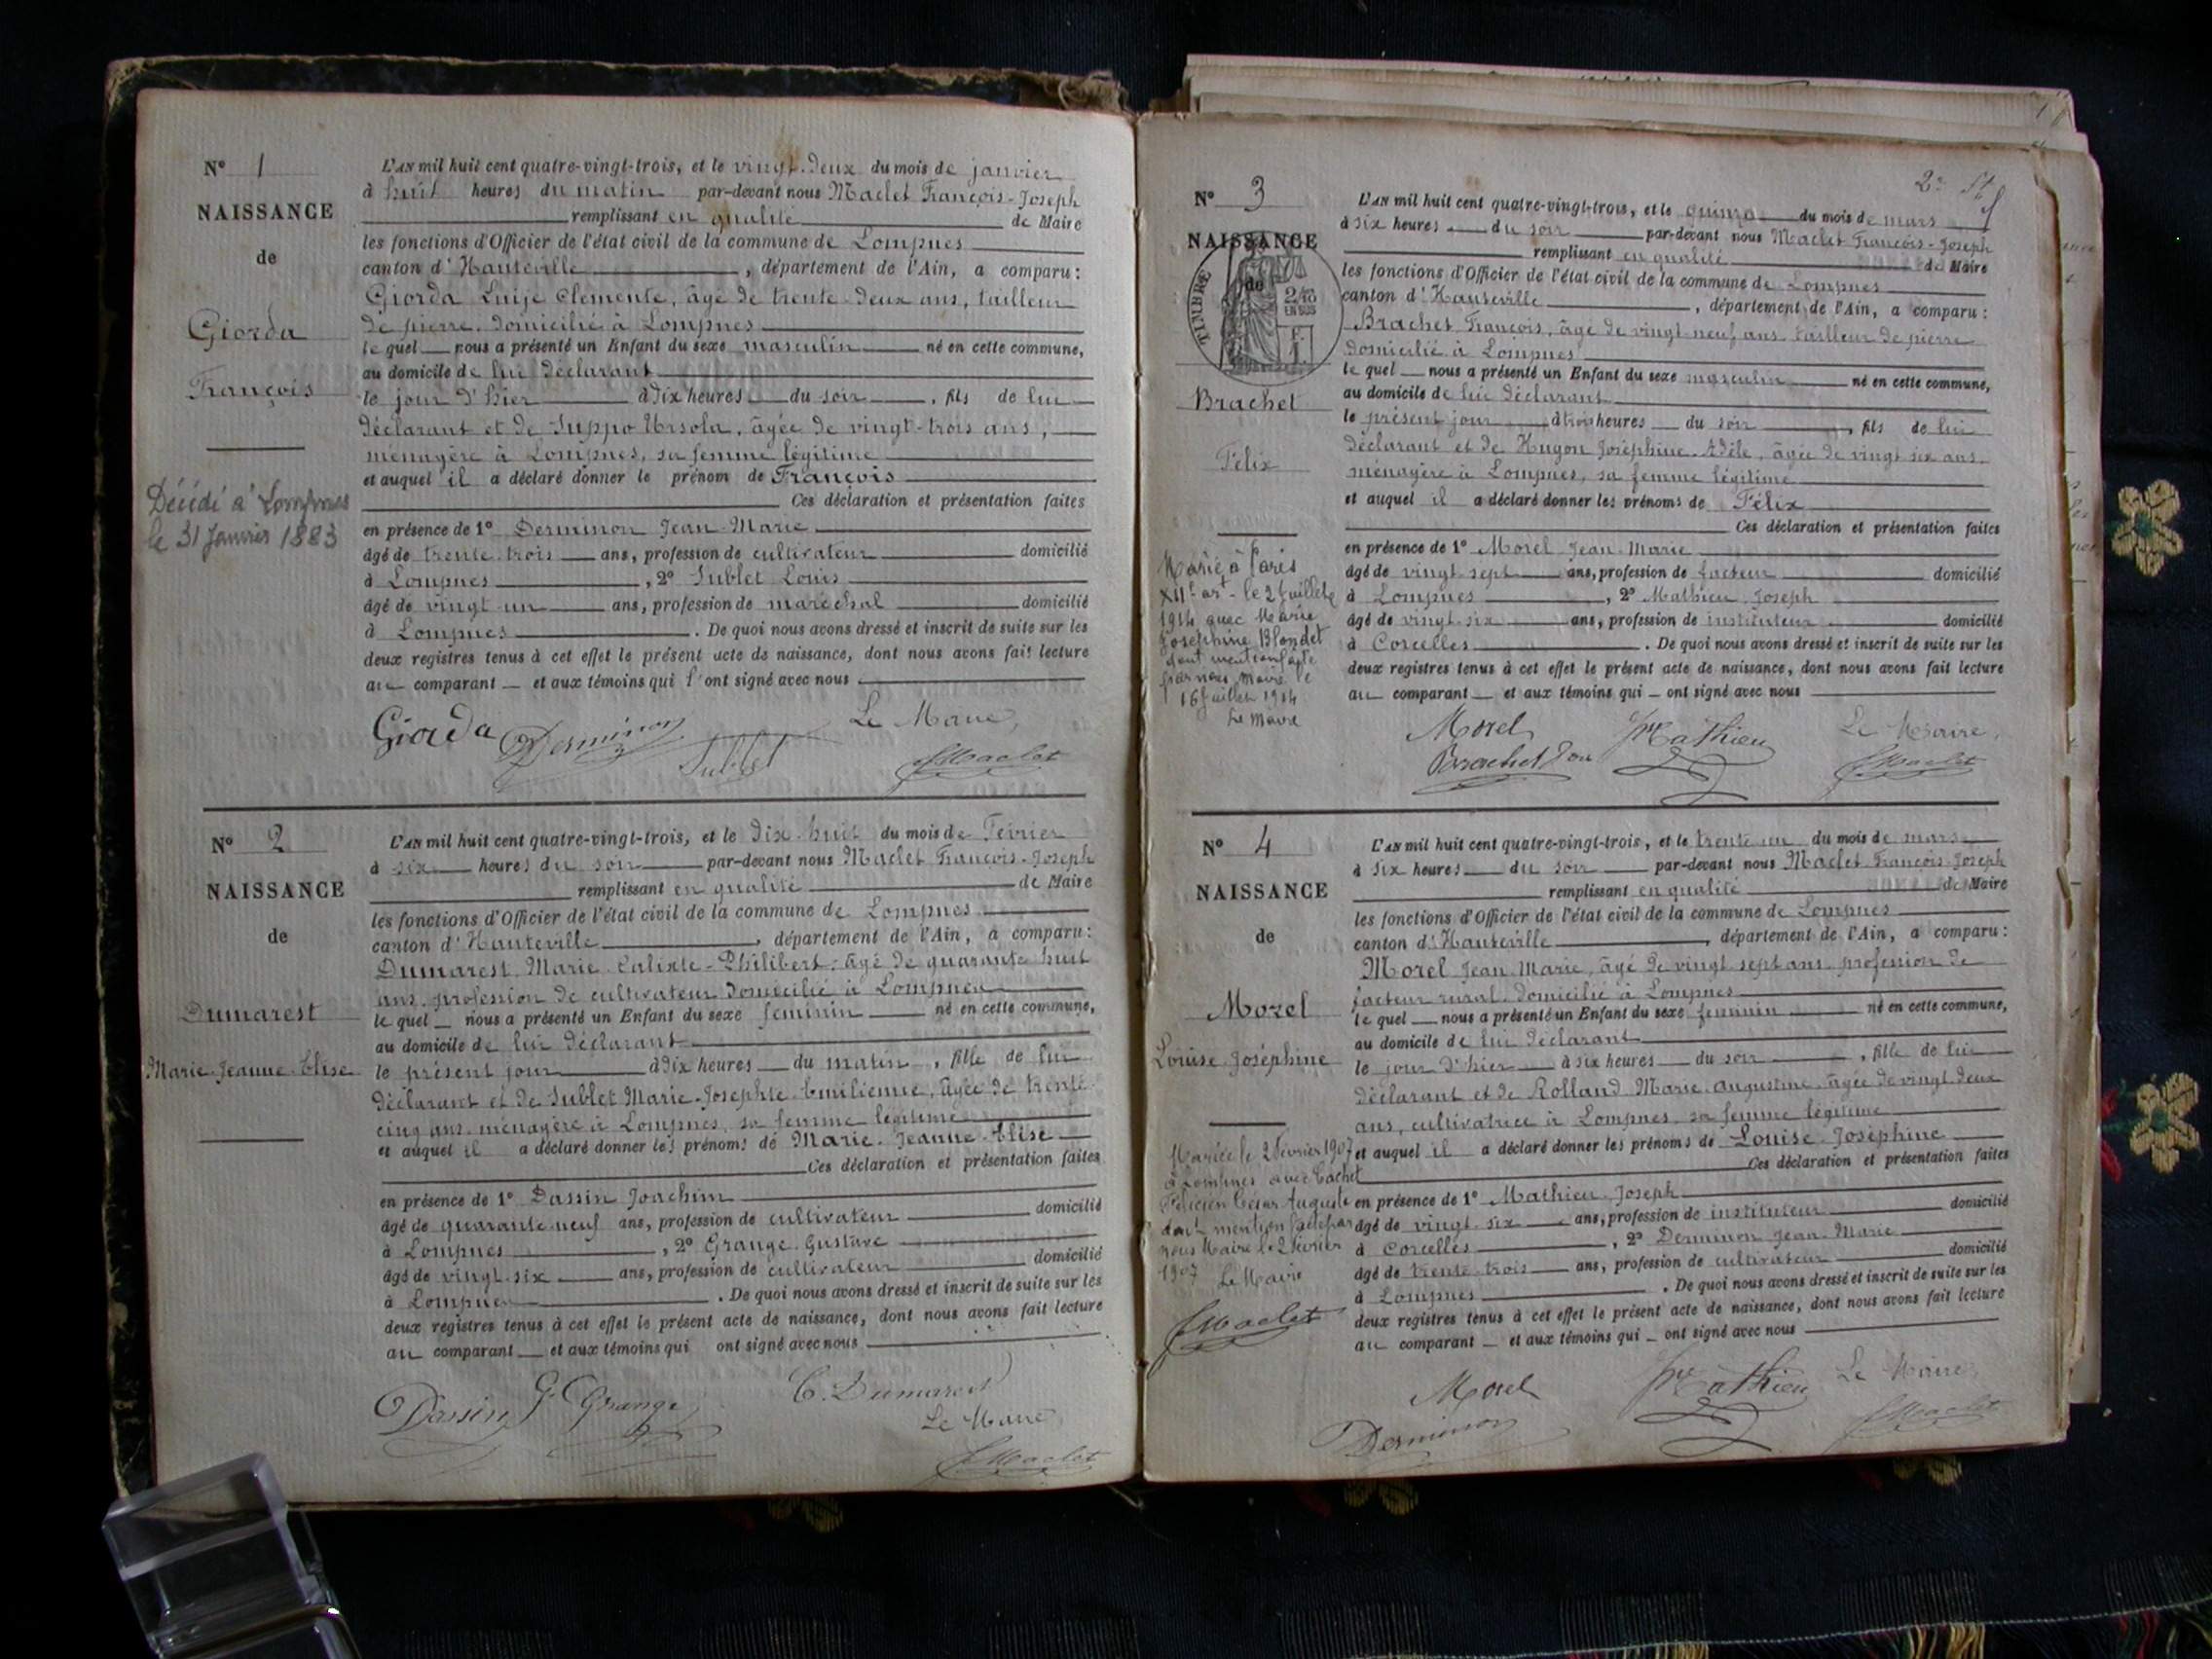 N° 1
NAISSANCE
de
Giorda
François
Décédé à Lompnes
le 31 Janvier 1883
L'AN mil huit cent quatre-vingt-trois, et le vingt-deux du mois de janvier
à huit heures du matin par-devant nous Maclet François-Joseph
remplissant en qualité de Maire
les fonctions d'Officier de l'état civil de la commune de Lompnes
canton d'Hauteville, département de l'Ain, a comparu:
Giorda Luije Clemente, âgé de trente-deux ans, tailleur
de pierre, domicilié à Lompnes
le quel nous a présenté un Enfant du sexe masculin né en cette commune,
au domicile de lui déclarant
le jour d'hier à dix heures du soir, fils de lui
déclarant et de Suppo Ursola, âgée de vingt-trois ans,
ménagère à Lompnes, sa femme légitime
et auquel il a déclaré donner le prénom de François
Ces déclaration et présentation faites
en présence de 1° Derminon Jean-Marie
âgé de trente-trois ans, profession de cultivateur domicilié
à Lompnes, 2° Sublet Louis
âgé de vingt-un ans, profession de maréchal domicilié
à Lompnes. De quoi nous avons dressé et inscrit de suite sur les
deux registres tenus à cet effet le présent acte de naissance, dont nous avons fait lecture
au comparant et aux témoins qui l'ont signé avec nous
Giorda Derminon Sublet Le Maire,
Maclet
N° 2
NAISSANCE
de
Dumarest
Marie-Jeanne-Elise
L'AN mil huit cent quatre-vingt-trois, et le dix-huit du mois de Février
à six heures du soir par-devant nous Maclet François-Joseph
remplissant en qualité de Maire
les fonctions d'Officier de l'état civil de la commune de Lompnes
canton d'Hauteville, département de l'Ain, a comparu:
Dumarest Marie-Calixte-Philibert, âgé de quarante huit
ans, profession de cultivateur domicilié à Lompnes
le quel nous a présenté un Enfant du sexe féminin né en cette commune,
au domicile de lui déclarant
le présent jour à dix heures du matin, fille de lui
déclarant et de Sublet Marie-Josephte-Emilienne, âgée de trente-
cinq ans, ménagère à Lompnes, sa femme légitime
et auquel il a déclaré donner les prénoms de Marie-Jeanne-Elise
Ces déclaration et présentation faites
en présence de 1° Dassin Joachim
âgé de quarante-neuf ans, profession de cultivateur domicilié
à Lompnes, 2° Grange Gustave
âgé de vingt-six ans, profession de cultivateur domicilié
à Lompnes. De quoi nous avons dressé et inscrit de suite sur les
deux registres tenus à cet effet le présent acte de naissance, dont nous avons fait lecture
au comparant et aux témoins qui ont signé avec nous
Dassin G. Grange C. Dumarest
Le Maire
Maclet
N° 3
NAISSANCE
de
TIMBRE
EN SUS
Brachet
Félix
Marié à Paris
XIIe art le 2 Juillet
1914 avec Marie
Joséphine Blondet
dont mention faite
par nous Maire le
16 Juillet 1914
Le Maire
L'AN mil huit cent quatre-vingt-trois, et le quinze du mois de mars
à six heures du soir par-devant nous Maclet François-Joseph
remplissant en qualité de Maire
les fonctions d'Officier de l'état civil de la commune de Lompnes
canton d'Hauteville, département de l'Ain, a comparu:
Brachet François, âgé de vingt-neuf ans, tailleur de pierre
domicilié à Lompnes
le quel nous a présenté un Enfant du sexe masculin né en cette commune,
au domicile de lui déclarant
le présent jour à trois heures du soir, fils de lui
déclarant et de Hugon Joséphine-Adèle, âgée de vingt six ans,
ménagère à Lompnes, sa femme légitime
et auquel il a déclaré donner les prénoms de Félix
Ces déclaration et présentation faites
en présence de 1° Morel Jean-Marie
âgé de vingt-sept ans, profession de facteur domicilié
à Lompnes, 2° Mathieu Joseph
âgé de vingt-six ans, profession de instituteur domicilié
à Corcelles. De quoi nous avons dressé et inscrit de suite sur les
deux registres tenus à cet effet le présent acte de naissance, dont nous avons fait lecture
au comparant et aux témoins qui ont signé avec nous
Morel Mathieu Le Maire,
Brachet Maclet
N° 4
NAISSANCE
de
Morel
Louise-Joséphine
Mariée le 2 Février 1907
à Lompnes avec Cachet
Félicien César Auguste
dont mention faite par
nous Maire le 2 Février
1907 Le Maire
Maclet
L'AN mil huit cent quatre-vingt-trois, et le trente-un du mois de mars
à six heures du soir par-devant nous Maclet François-Joseph
remplissant en qualité de Maire
les fonctions d'Officier de l'état civil de la commune de Lompnes
canton d'Hauteville, département de l'Ain, a comparu:
Morel Jean-Marie, âgé de vingt sept ans, profession de
facteur rural, domicilié à Lompnes
le quel nous a présenté un Enfant du sexe féminin né en cette commune,
au domicile de lui déclarant
le jour d'hier à six heures du soir, fille de lui
déclarant et de Rolland Marie-Augustine, âgée de vingt-deux
ans, cultivatrice à Lompnes, sa femme légitime
et auquel il a déclaré donner les prénoms de Louise-Joséphine
Ces déclaration et présentation faites
en présence de 1° Mathieu Joseph
âgé de vingt-six ans, profession de instituteur domicilié
à Corcelles, 2° Derminon Jean-Marie
âgé de trente-trois ans, profession de cultivateur domicilié
à Lompnes. De quoi nous avons dressé et inscrit de suite sur les
deux registres tenus à cet effet le présent acte de naissance, dont nous avons fait lecture
au comparant et aux témoins qui ont signé avec nous
Morel Mathieu Le Maire,
Derminon Maclet